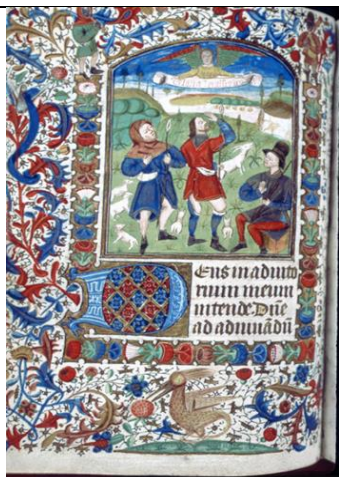 Deus in adiuto
rium meum
intende. Dñe
ad adiuuãdũ